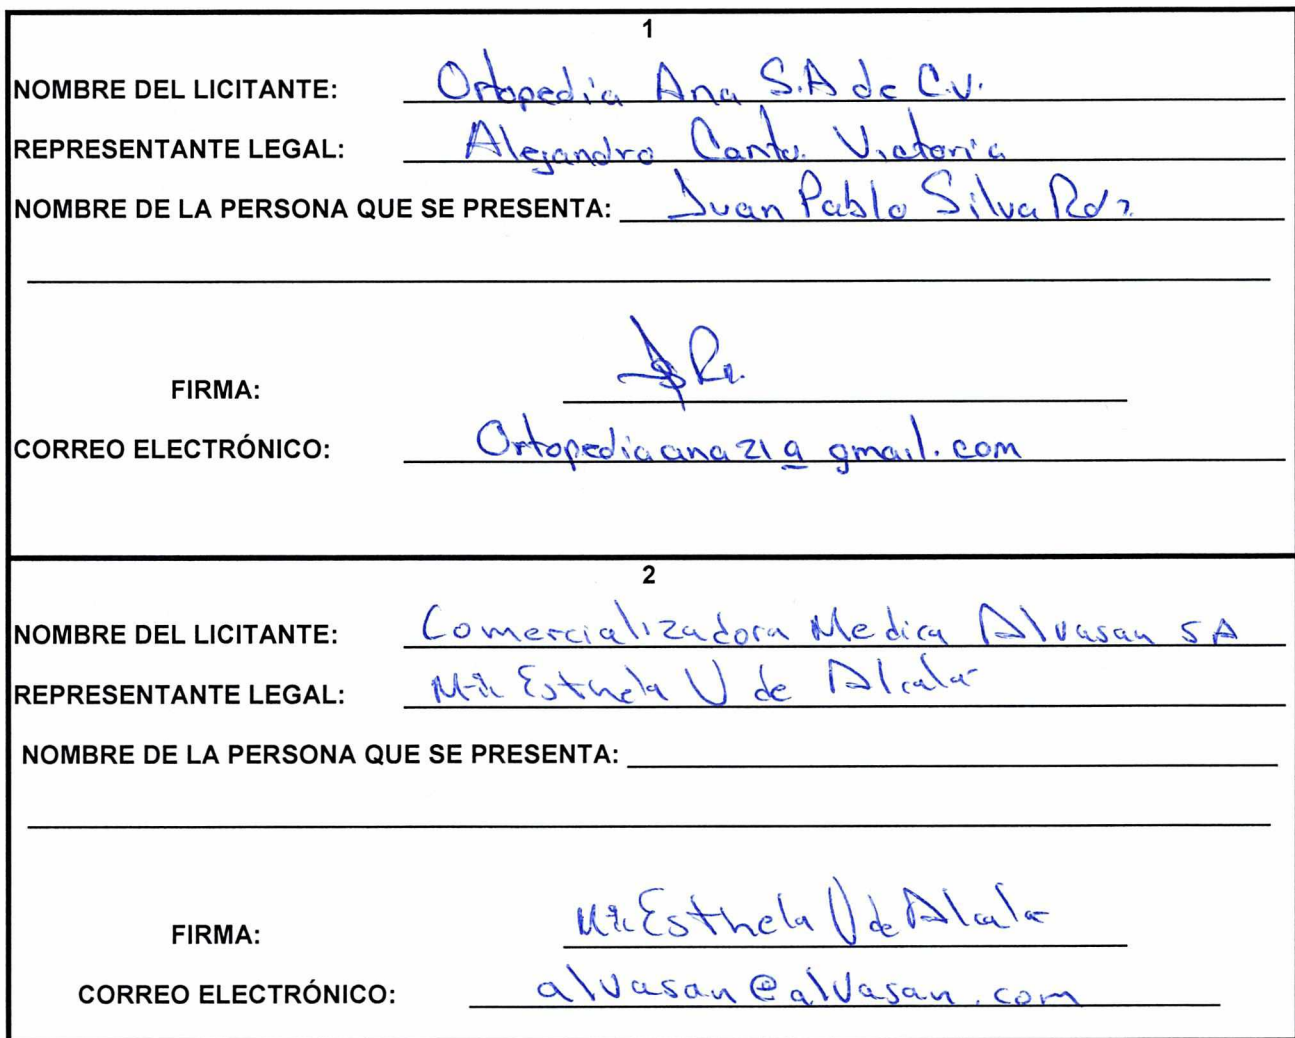 1
NOMBRE DEL LICITANTE: Ortopedia Ana S.A de C.V.
REPRESENTANTE LEGAL: Alejandro Canto Victoria
NOMBRE DE LA PERSONA QUE SE PRESENTA: Juan Pablo Silva Rdz
FIRMA:
CORREO ELECTRÓNICO: Ortopediaana21@gmail.com
2
NOMBRE DEL LICITANTE: Comercializadora Medica Alvasan SA
REPRESENTANTE LEGAL: Ma Esthela V de Alcala
NOMBRE DE LA PERSONA QUE SE PRESENTA:
FIRMA: Ma Esthela V de Alcala
CORREO ELECTRÓNICO: alvasan@alvasan.com